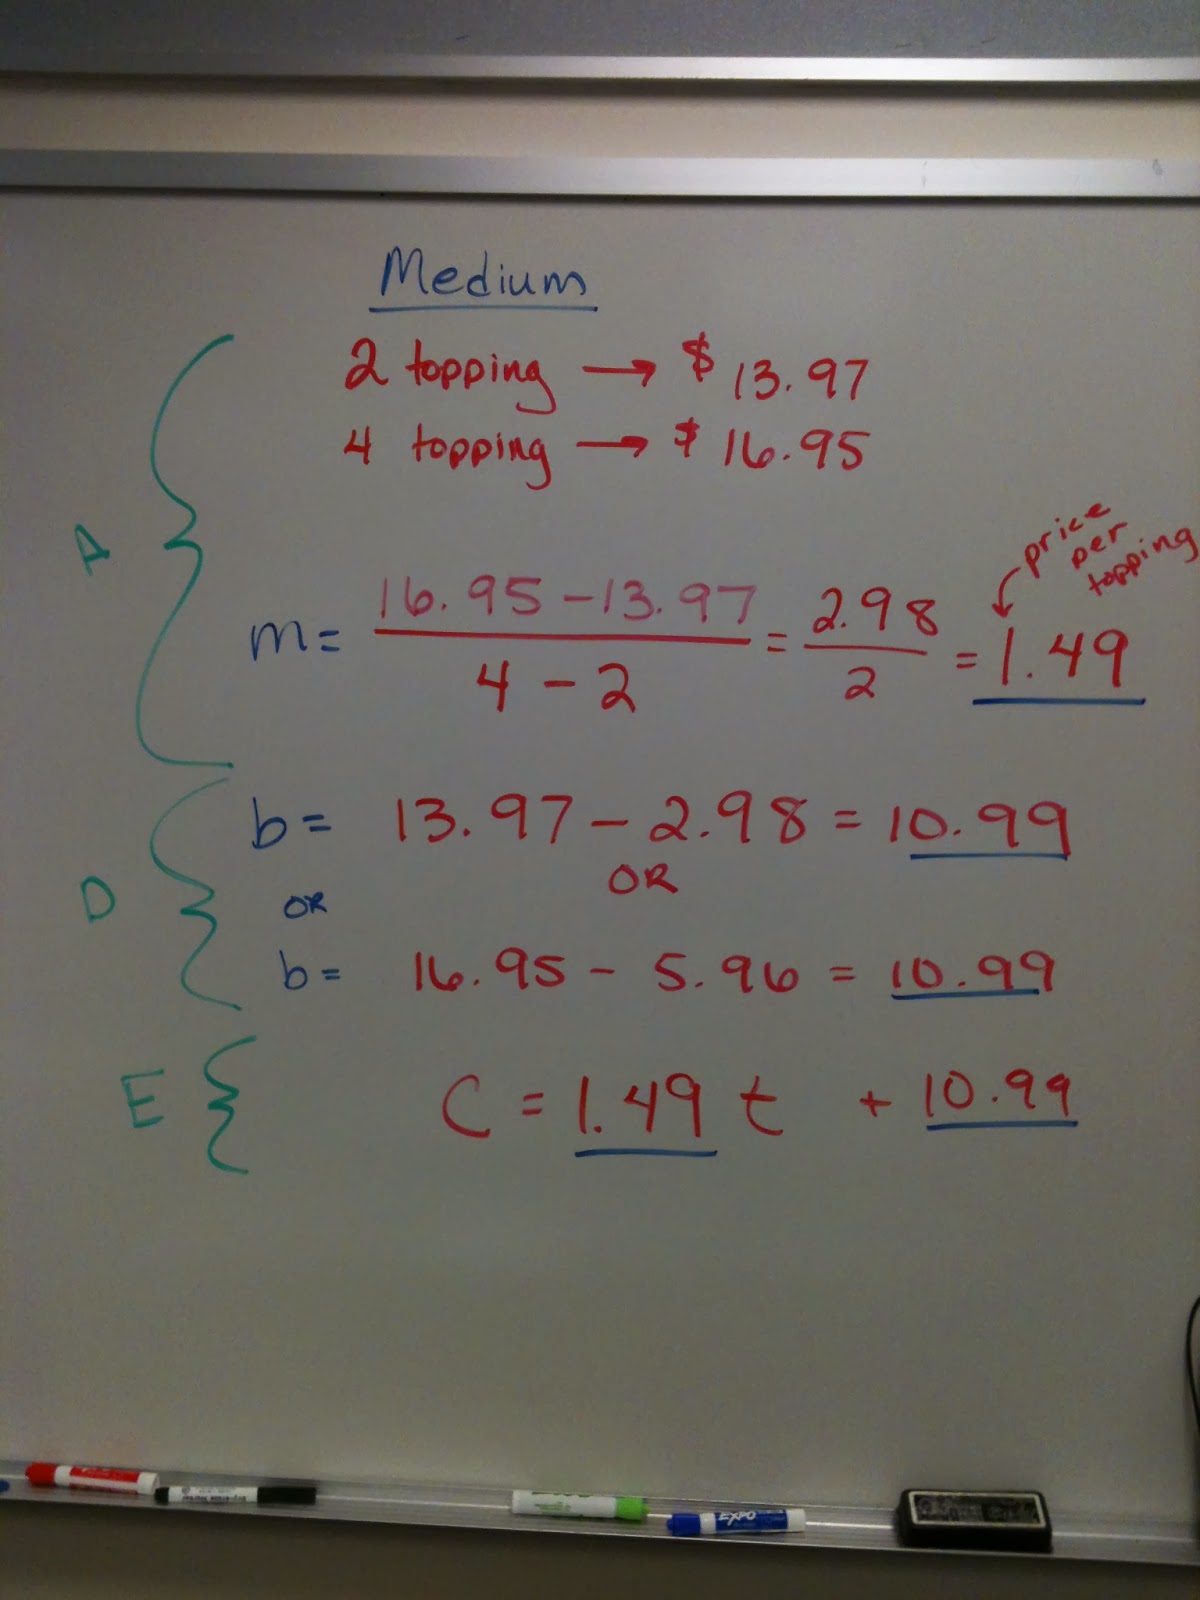 Medium
2 topping → $ 13.97
4 topping → $ 16.95
A
price
per
topping
m = 16.95 - 13.97 / 4 - 2 = 2.98 / 2 = 1.49
b = 13.97 - 2.98 = 10.99
OR OR
D
b = 16.95 - 5.96 = 10.99
E
C = 1.49 t + 10.99
EXPO